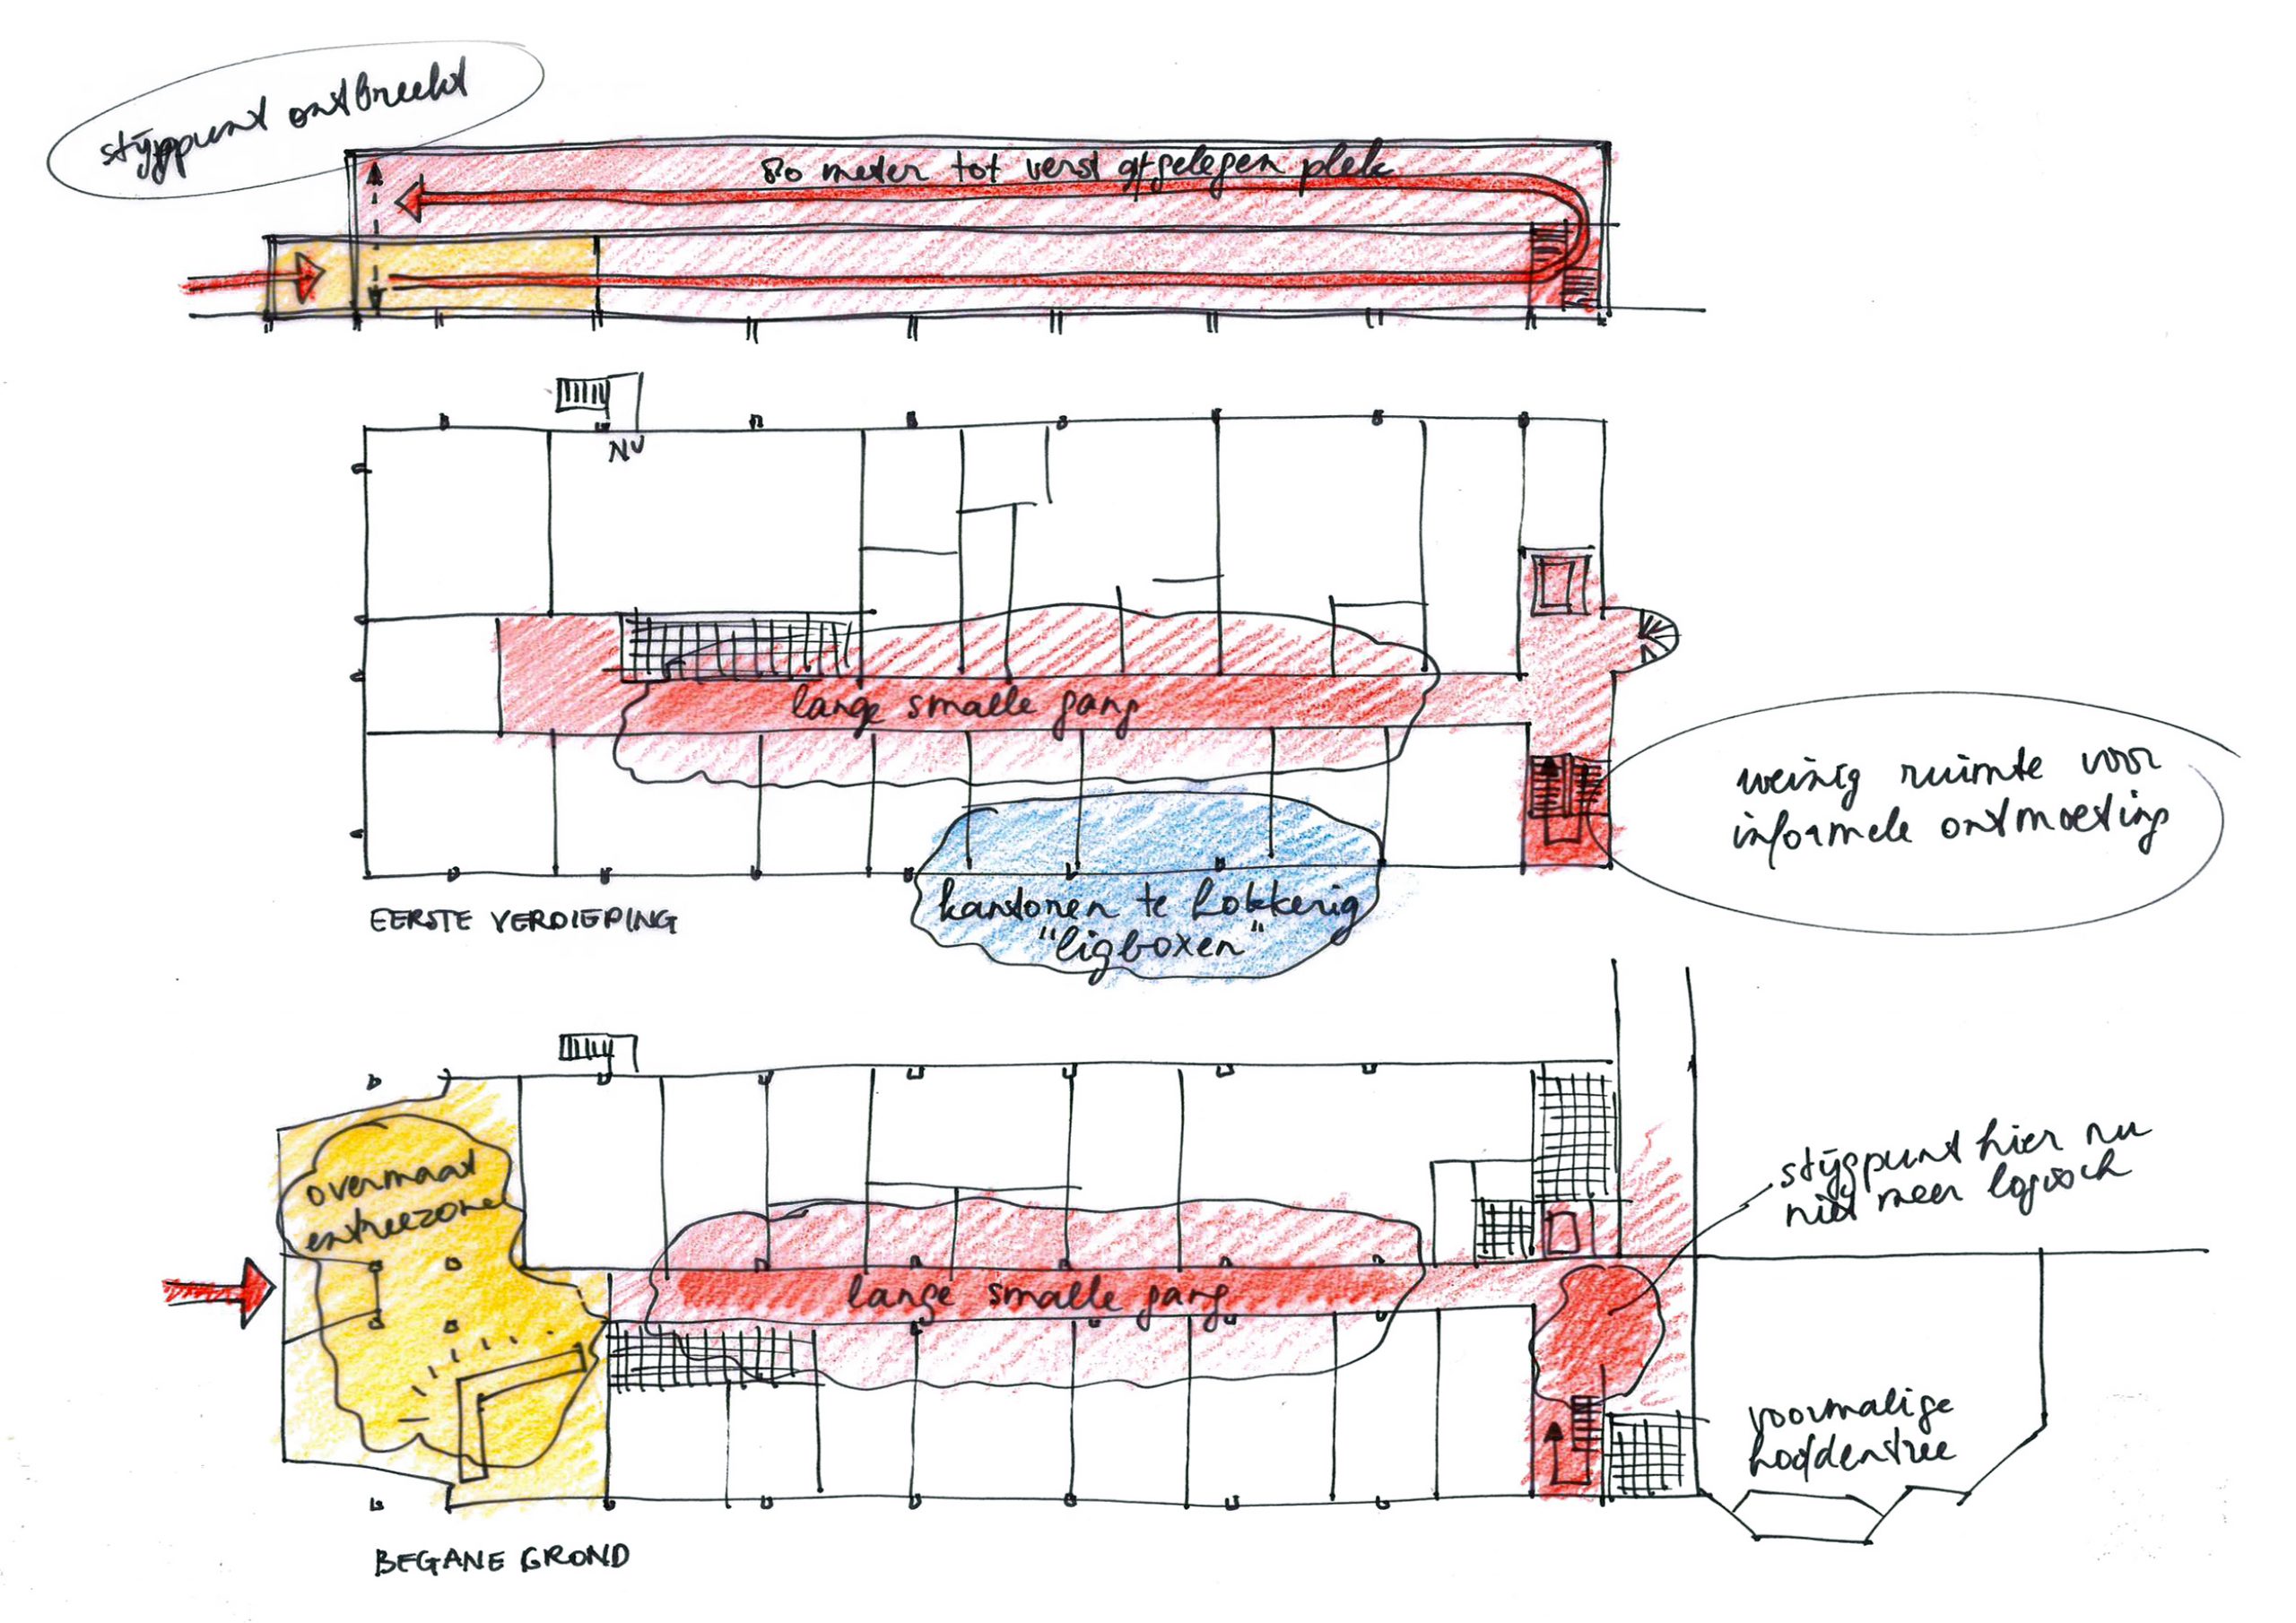 stijgpunt ontbreekt
80 meter tot verst afgelegen plek
NU
lange smalle gang
weinig ruimte voor
informele ontmoeting
kantoren te hokkerig
"ligboxen"
EERSTE VERDIEPING
overmaat
entreezone
stijgpunt hier nu
niet meer logisch
lange smalle gang
voormalige
hoofdentree
BEGANE GROND